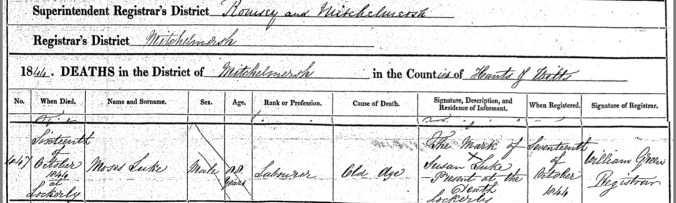 Superintendent Registrar's District Romsey and Mitchelmersh
Registrar's District Mitchelmersh
1844. DEATHS in the District of Mitchelmersh in the Counties of Hants & Wilts
No. When Died. Name and Surname. Sex. Age. Rank or Profession. Cause of Death. Signature, Description, and Residence of Informant. When Registered. Signature of Registrar.
447 Sixteenth of October 1844 at Lockerly Moses Luke Male Years Labourer Old Age The Mark of X Susan Luke Present at the Death Lockerly Seventeenth of October 1844 William Green Registrar